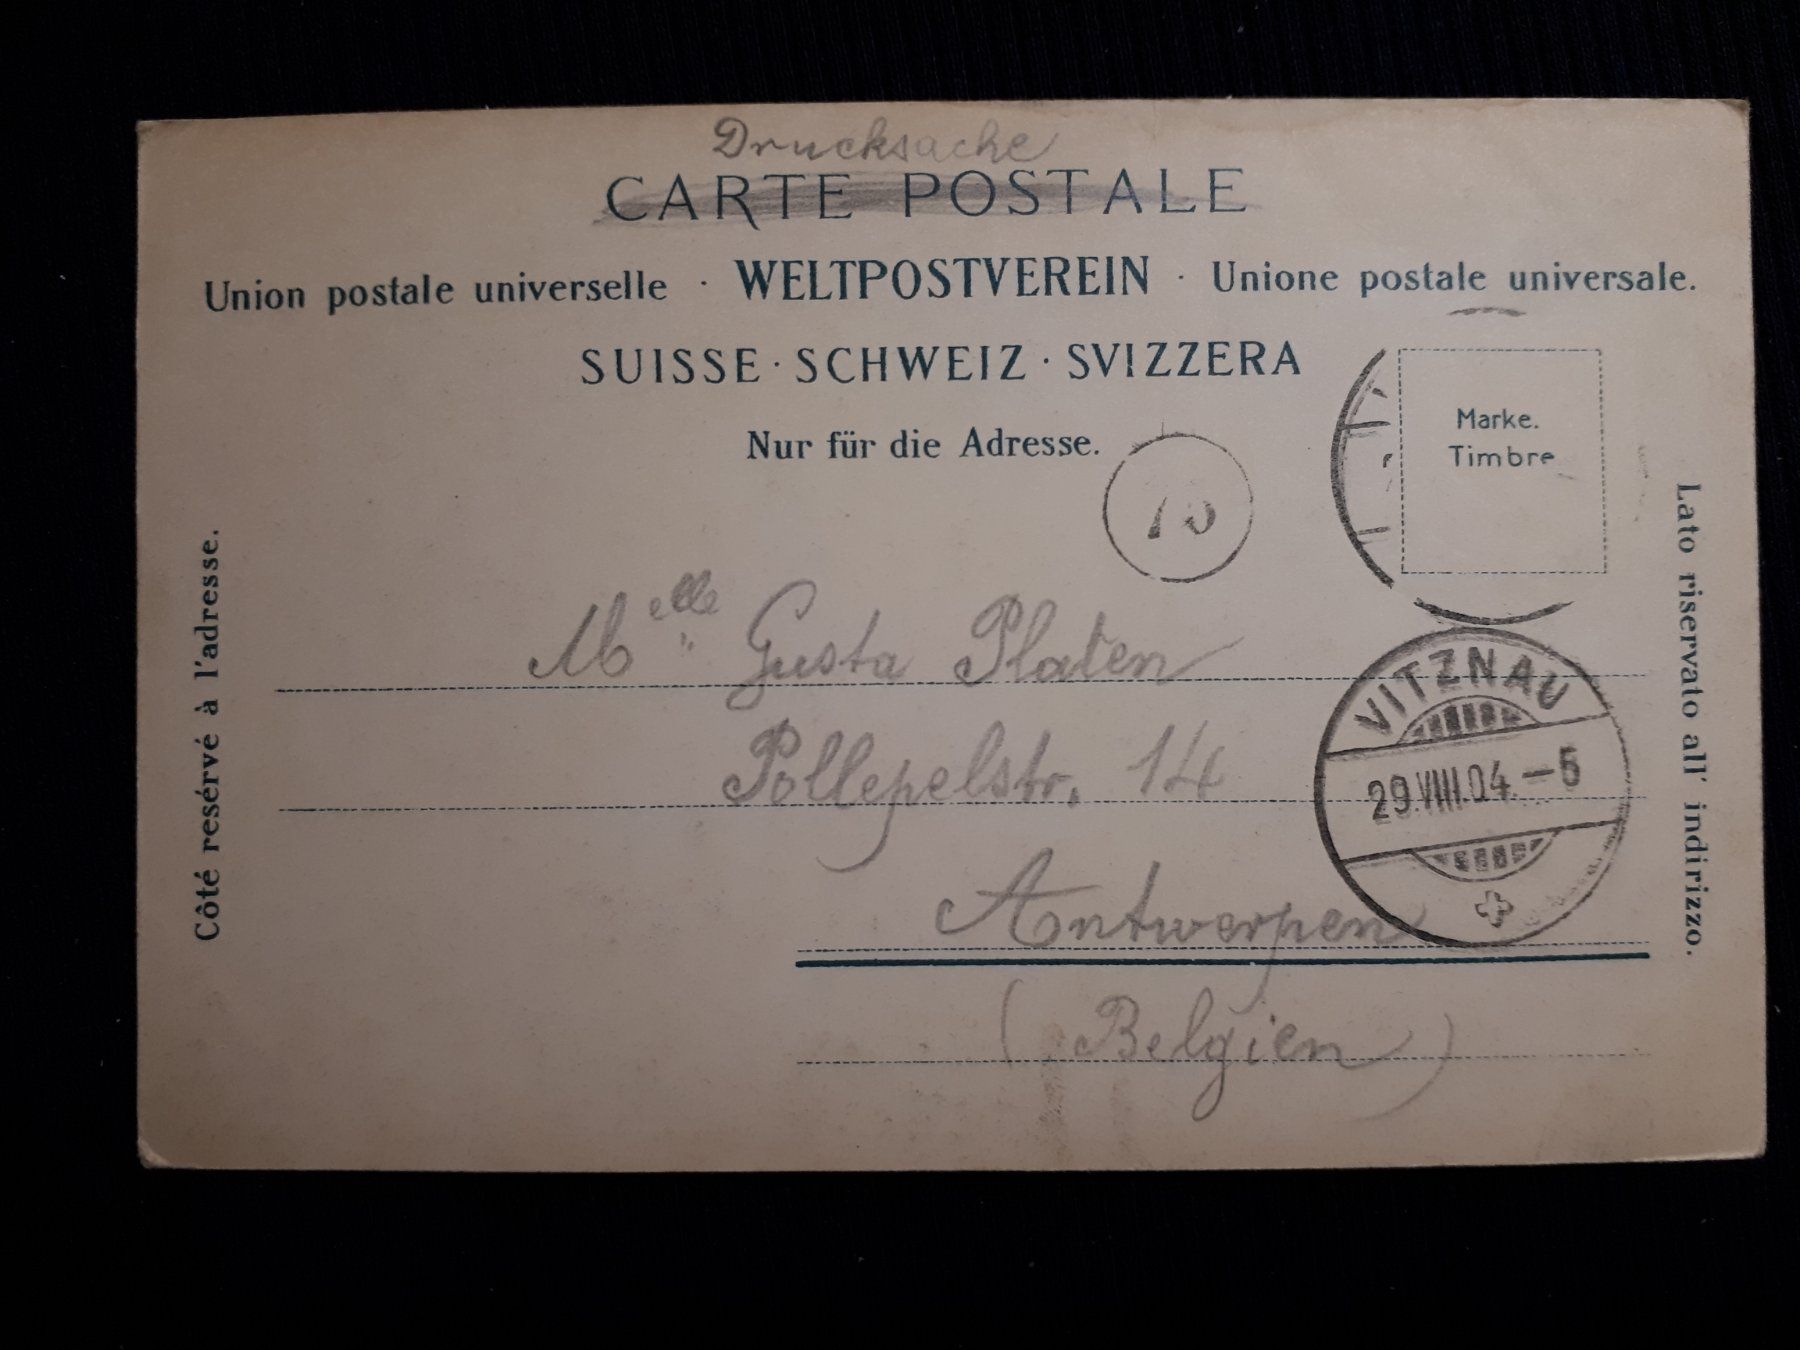 Drucksache
CARTE POSTALE
Union postale universelle · WELTPOSTVEREIN · Unione postale universale.
SUISSE · SCHWEIZ · SVIZZERA
Nur für die Adresse.
Marke.
Timbre
Côté resérvé à l'adresse.
Lato riservato all' indirizzo.
Melle Gusta Platen
Pollepelstr. 14
Antwerpen
(Belgien)
VITZNAU
29.VIII.04.–5